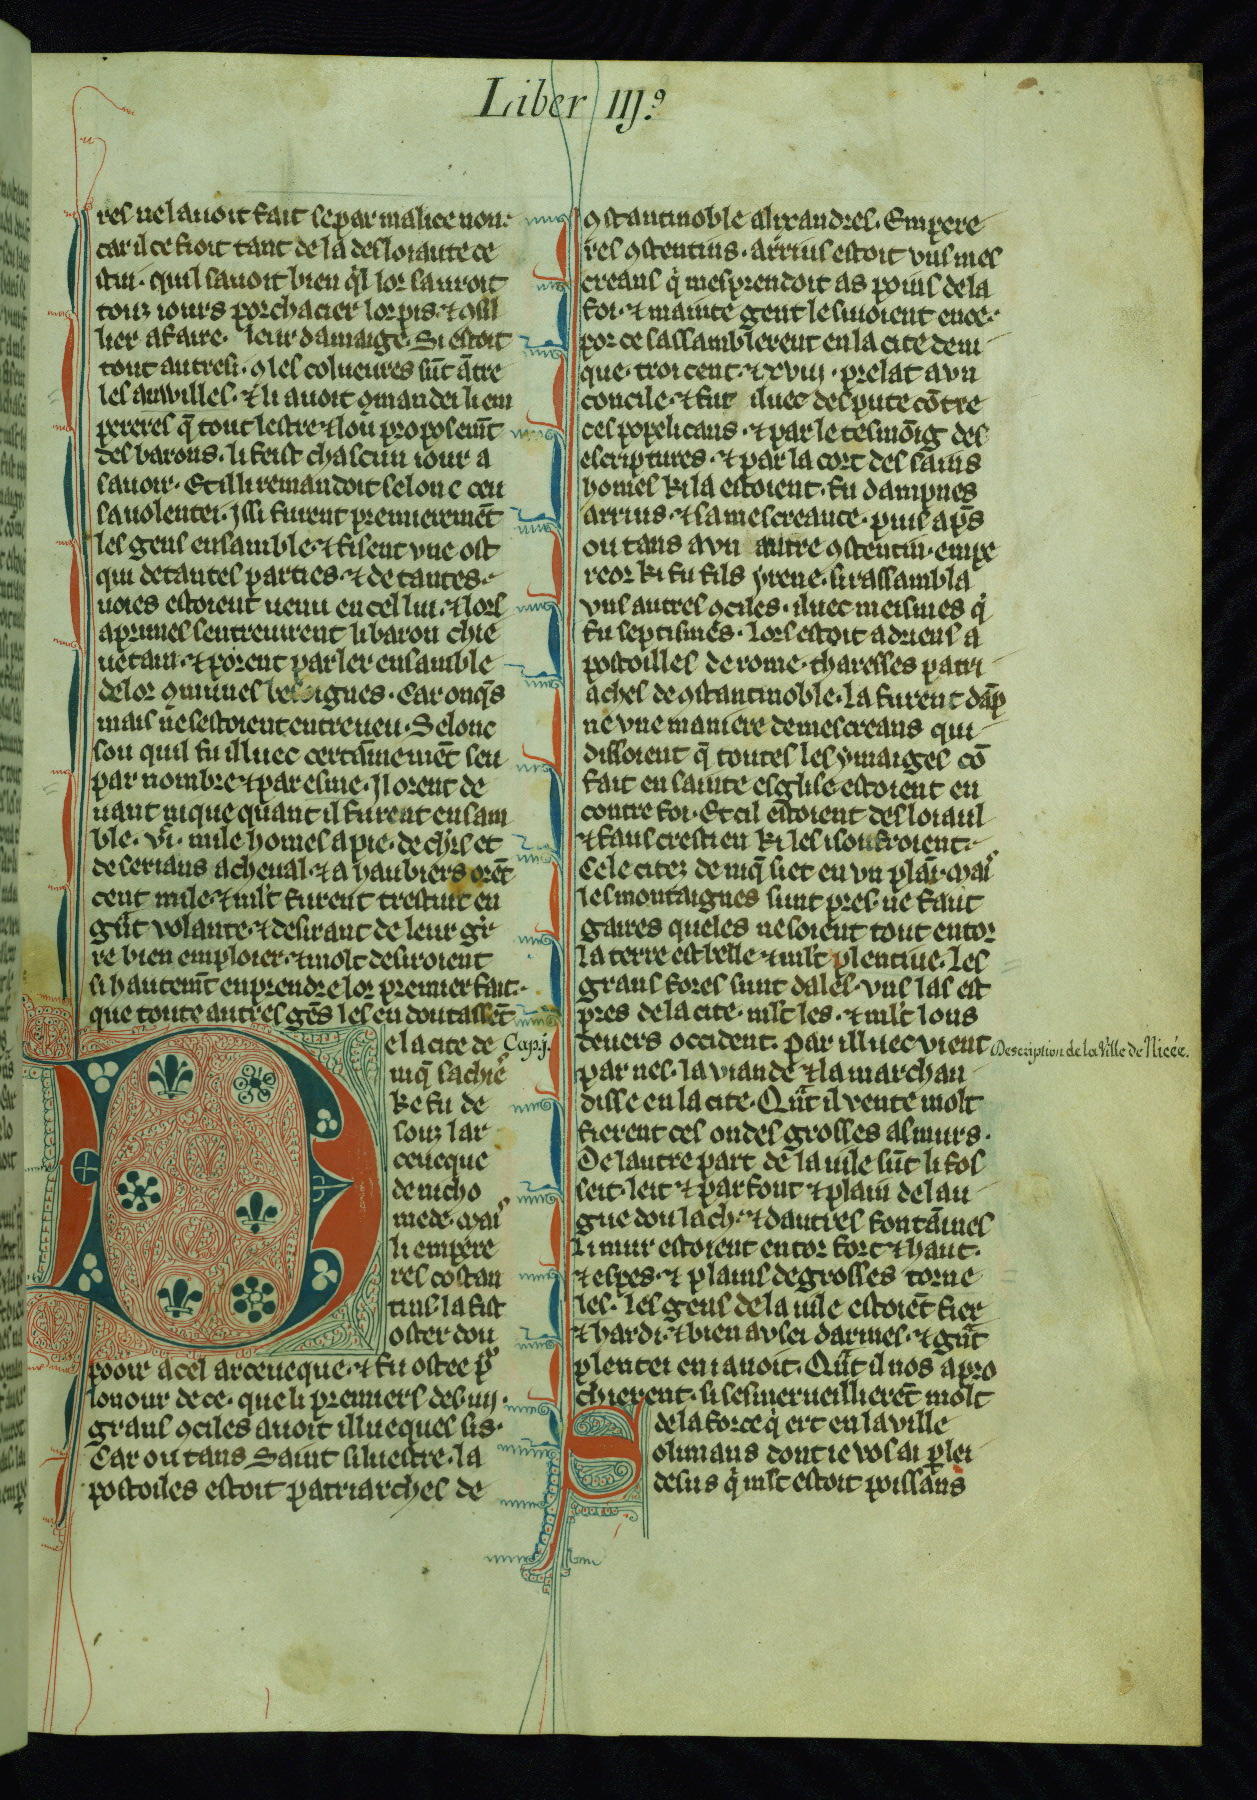 Liber IIJ.9
res ne lauoit fait se par malice non.
car il ce fioit tant de la desloiaute ce
stui. quil sauoit bien q̃l lor sauroit
touz iours porchacier lor pis. ⁊ 9sil
lier a faire. leur damaige. Si estoit
tout autresi. 9 les colueures sũt ãtre
les anwilles. ⁊ li auoit 9mandei li em
pereres q̃ tout lestre ⁊ lou proposemẽt
des barons. li feist chascun iour a
sauoir. Et il li remandoit selonc ceu
sa uolentei. Jssi furent premieremẽt
les gens ensamble. ⁊ fisent vne ost
qui de tantes parties. ⁊ de tantes
uoies estoient uenu en cel liu. ⁊ lors
aprimes sentreuirent li baron chie
uetain. ⁊ porent parler ensamble
de lor 9munes besoignes. Car onq̃s
mais ne sestoient entreueu. Selonc
sou quil fu illuec certãinemẽt seu
par nombre ⁊ par esme. Il orent de
uant nique quant il furent ensam
ble. vi. mile homes a pie. de chrs et
de serians a cheual. ⁊ a haubiers orẽt
cent mile. ⁊ mlt furent trestuit en
grãt volante. ⁊ desirant de leur gr̃
re bien emploier. ⁊ molt desiroient
si hautemẽt enprendre lor premier fait.
que toute autres gẽs les en doutassẽt
De la cite de Cap.j.
niq̃ sachie
ke fu de
souz lar
ceueque
de nicho
mede. mais
li empere
res costan
tins la fist
oster dou
pooir a cel arceueque. ⁊ fu ostee p̃
lonour de ce. que li premiers des iiij.
grans 9ciles auoit illueques sis.
Car ou tans Saint siluestre. la
postoiles estoit patriarches de
9stantinoble alixandres. Empere
res 9stentins. arrius estoit vns mes
creans q̃ mesprendoit as poins de la
foi. ⁊ mainte gent le siuoient en ce.
por ce sassamblerent en la cite de ni
que. troi cent. ⁊ xviij. prelat a vn
concile. ⁊ fut iluec despute cõtre
ces popelicans. ⁊ par le tesmoĩg des
escriptures. ⁊ par la cort des sains
homes ki la estoient. fu dampnes
arrius. ⁊ sa mescreance. puis ap̃s
ou tans a vn autre 9stentin. empe
reor ki fu fils yrene. si rassambla
vns autres 9ciles. iluec meismes q̃
fu septismes. lors estoit adriens a
postoilles de rome. tharesses patri
aches de 9stantinoble. la furent dãp
ne vne maniere de mescreans qui
dissoient q̃ toutes les ymaiges cõ
fait en sainte esglise estoient en
contre foi. Et cil estoient desloiaul
⁊ faus crestien ki les i soufroient.
Cele citez de niq̃ siet en vn plai. mais
les montaignes sunt pres. ne faut
gaires queles ne soient tout entor
la terre est belle ⁊ mlt plentiue. les
grans fores sunt dales. vns las est
pres de la cite. mlt les. ⁊ mlt lons
deuers occident. par illuec vient Description de la Ville de Nicée.
par nes. la viande ⁊ la marchan
disse en la cite. Quãt il vente molt
fierent ces ondes grosses as murs.
De lautre part de la uile sũt li fos
seit. leit ⁊ parfont ⁊ plain de lau
gue dou lach. ⁊ dautres fontãines
li mur estoient entor fort ⁊ haut.
⁊ espes. ⁊ plains de grosses torne
les. les gens de la uile estoiẽt fier
⁊ hardi. ⁊ bien aysei darmes. ⁊ grãt
plentei en i auoit. Quãt il nos apro
chierent. si sesmerueillierẽt molt
de la force q̃ ert en la ville
Solimans dont ie vos ai p̱lei
desus q̃ mlt estoit poissans